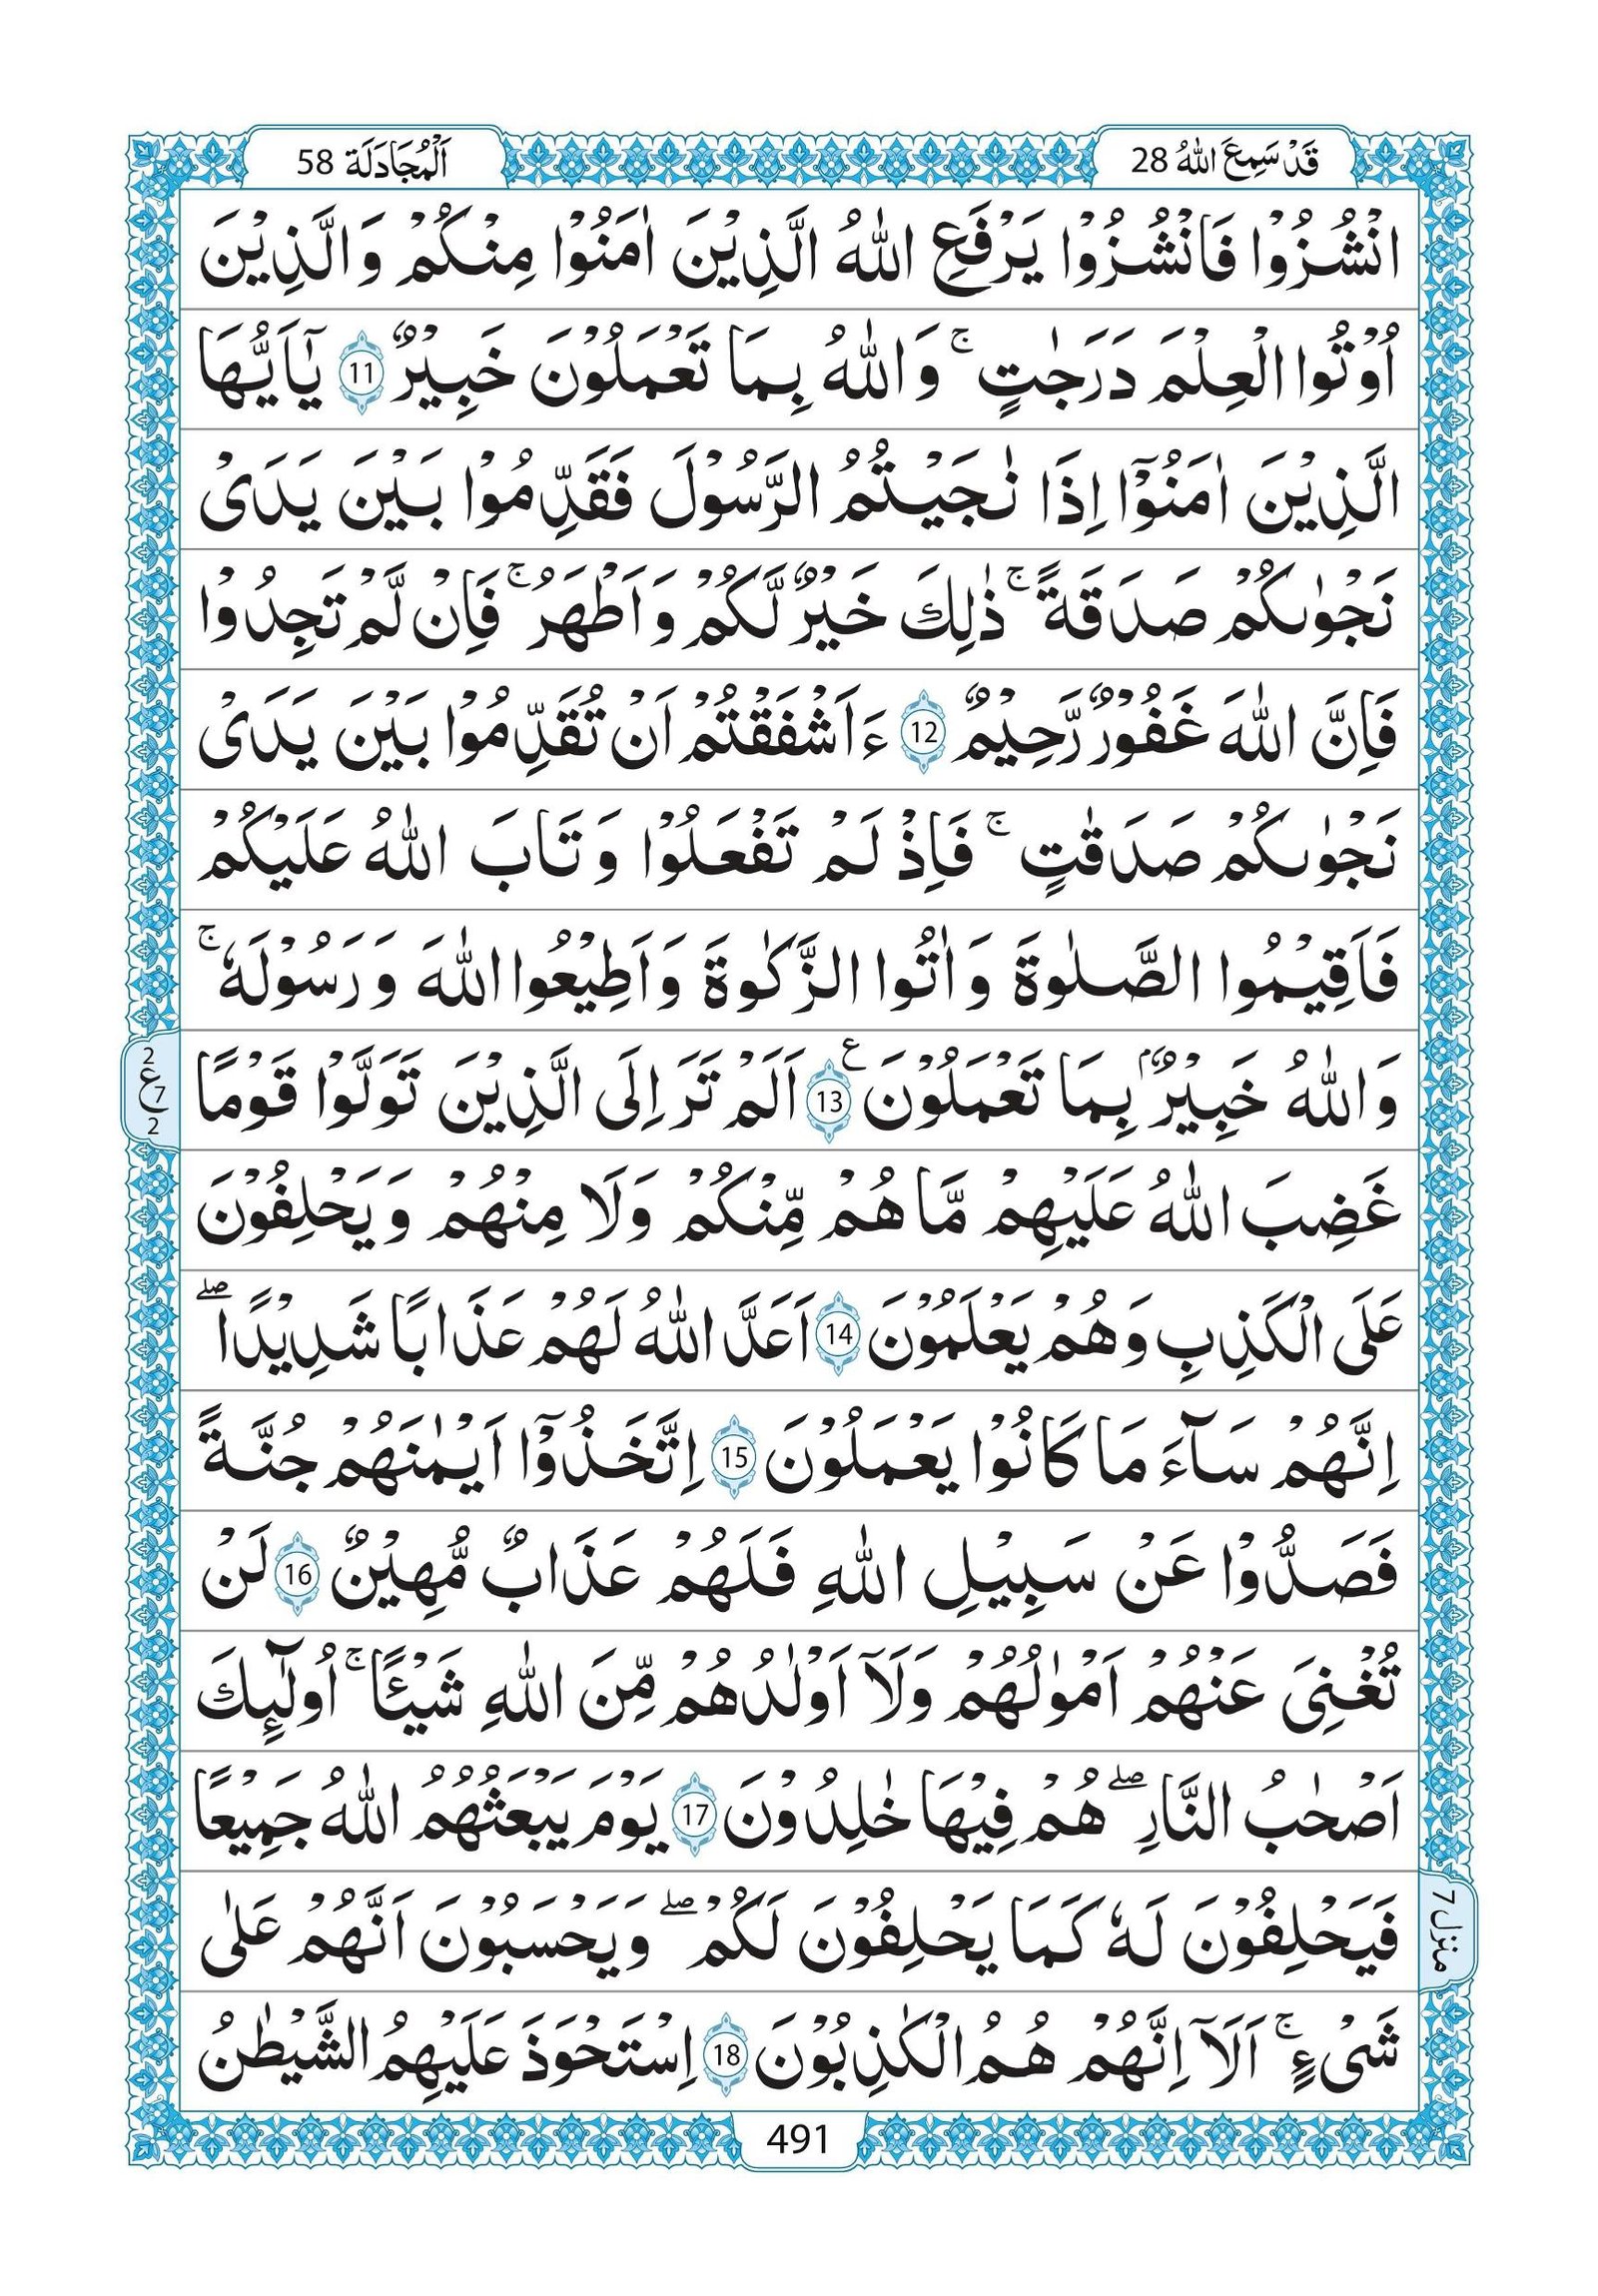 قَدْ سَمِعَ اللّٰهُ 28
اَلْمُجَادَلَة 58
انْشُزُوْا فَانْشُزُوْا يَرْفَعِ اللّٰهُ الَّذِيْنَ اٰمَنُوْا مِنْكُمْ وَالَّذِيْنَ
اُوْتُوا الْعِلْمَ دَرَجٰتٍ ۚ وَاللّٰهُ بِمَا تَعْمَلُوْنَ خَبِيْرٌ 11 يٰۤاَيُّهَا
الَّذِيْنَ اٰمَنُوْۤا اِذَا نٰجَيْتُمُ الرَّسُوْلَ فَقَدِّمُوْا بَيْنَ يَدَىْ
نَجْوٰىكُمْ صَدَقَةً ۚ ذٰلِكَ خَيْرٌ لَّكُمْ وَاَطْهَرُ ۚ فَاِنْ لَّمْ تَجِدُوْا
فَاِنَّ اللّٰهَ غَفُوْرٌ رَّحِيْمٌ 12 ءَاَشْفَقْتُمْ اَنْ تُقَدِّمُوْا بَيْنَ يَدَىْ
نَجْوٰىكُمْ صَدَقٰتٍ ۚ فَاِذْ لَمْ تَفْعَلُوْا وَتَابَ اللّٰهُ عَلَيْكُمْ
فَاَقِيْمُوا الصَّلٰوةَ وَاٰتُوا الزَّكٰوةَ وَاَطِيْعُوا اللّٰهَ وَرَسُوْلَهٗ ۚ
وَاللّٰهُ خَبِيْرٌۢ بِمَا تَعْمَلُوْنَ ع 13 اَلَمْ تَرَ اِلَى الَّذِيْنَ تَوَلَّوْا قَوْمًا
2 ع 7 2
غَضِبَ اللّٰهُ عَلَيْهِمْ مَّا هُمْ مِّنْكُمْ وَلَا مِنْهُمْ وَيَحْلِفُوْنَ
عَلَى الْكَذِبِ وَهُمْ يَعْلَمُوْنَ 14 اَعَدَّ اللّٰهُ لَهُمْ عَذَابًا شَدِيْدًا ۖ
اِنَّهُمْ سَآءَ مَا كَانُوْا يَعْمَلُوْنَ 15 اِتَّخَذُوْۤا اَيْمٰنَهُمْ جُنَّةً
فَصَدُّوْا عَنْ سَبِيْلِ اللّٰهِ فَلَهُمْ عَذَابٌ مُّهِيْنٌ 16 لَنْ
تُغْنِىَ عَنْهُمْ اَمْوٰلُهُمْ وَلَاۤ اَوْلٰدُهُمْ مِّنَ اللّٰهِ شَيْـًٔا ۚ اُولٰٓئِكَ
اَصْحٰبُ النَّارِ ۖ هُمْ فِيْهَا خٰلِدُوْنَ 17 يَوْمَ يَبْعَثُهُمُ اللّٰهُ جَمِيْعًا
فَيَحْلِفُوْنَ لَهٗ كَمَا يَحْلِفُوْنَ لَكُمْ ۖ وَيَحْسَبُوْنَ اَنَّهُمْ عَلٰى
منزل ٧
شَىْءٍ ۚ اَلَاۤ اِنَّهُمْ هُمُ الْكٰذِبُوْنَ 18 اِسْتَحْوَذَ عَلَيْهِمُ الشَّيْطٰنُ
491